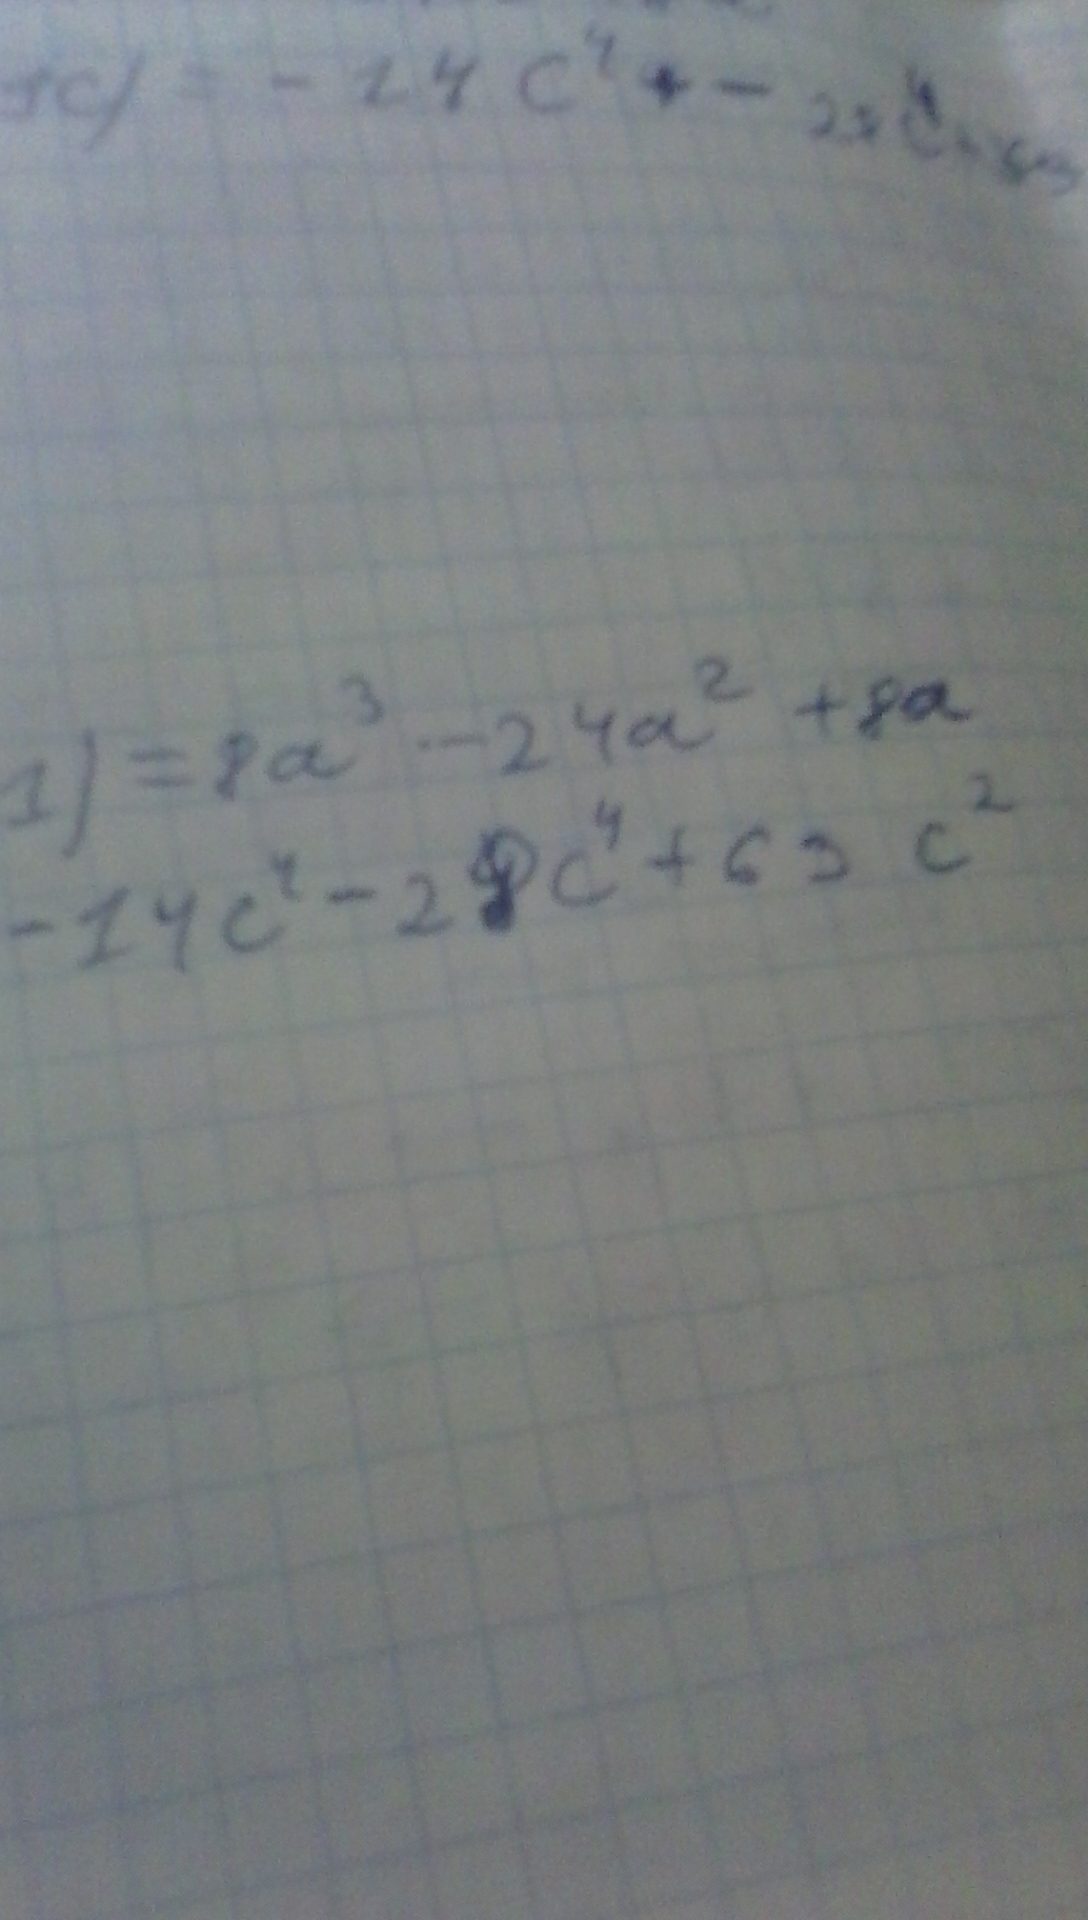 ) = - 14 c⁴ + - 28 c⁴
1) = 8a³ - 24a² + 8a
- 14c⁴ - 28c⁴ + 63 c²